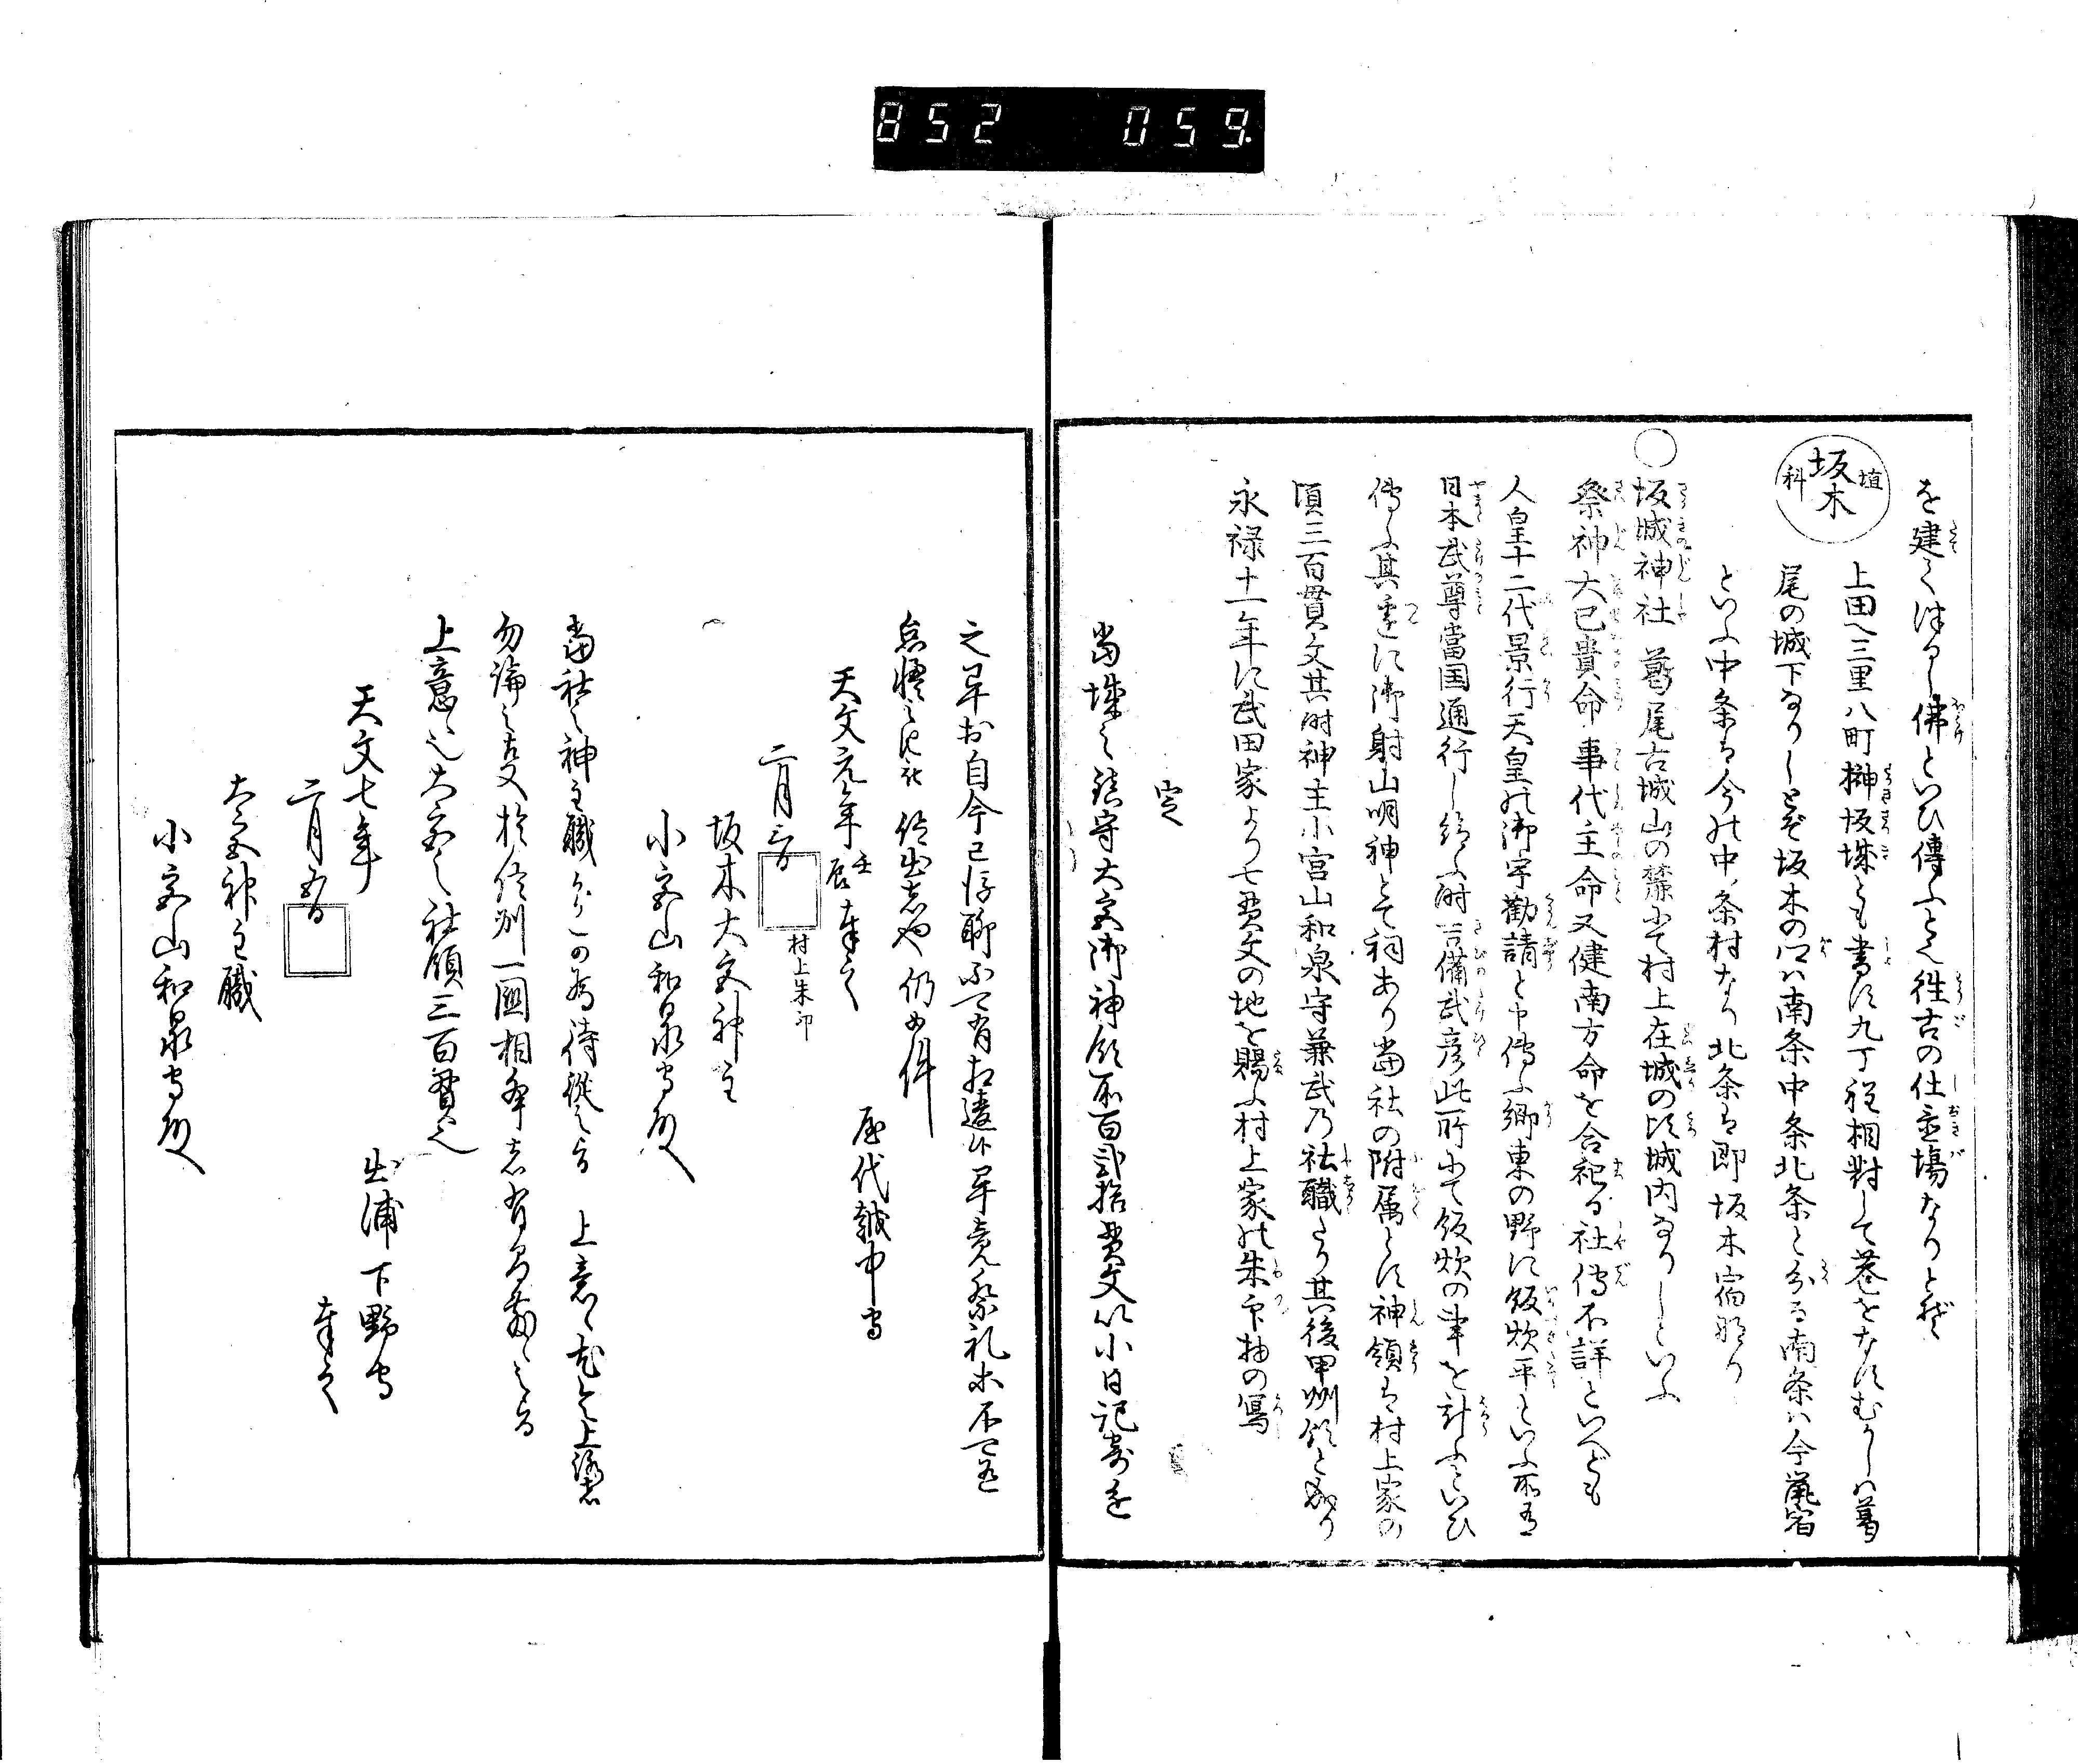 852 059
を建てはりし佛といひ傳ふとそ往古の仕置場なりと哉
坂木
埴科
上田へ三里八町榊坂城とも書す九丁程相對して巷をなすむかしハ葛
尾の城下なりしとぞ坂木の沢ハ南条中条北条と分る南条ハ今鼠宿
といふ中条は今の中条村なり北条は即坂木宿なり
○坂城神社 葛尾古城山の麓にて村上在城の頃城内なりしといふ
祭神大己貴命事代主命又健南方命を合祀る社傳不詳といへども
人皇十二代景行天皇の御宇勧請と申傳ふ郷東の野に飯炊平といふ所有
日本武尊當国通行し給ふ時吉備武彦此所にて飯炊の事を計ふといひ
傳ふ其辺に御射山明神とて祠あり當社の附属とす神領は村上家の
頃三百貫文其時神主小宮山和泉守兼武乃社職たり其後甲州領と成り
永禄十一年に武田家より七貫文の地を賜ふ村上家の朱印抽の写
定
當城之鎮守大宮御神領所百弐拾貫文以小日記寄進
之畢於自今已後聊不可有相違候畢竟祭礼等不可有
怠慢之由被仰出者也仍如件
天文元年壬辰 奉之
屋代越中守
二月三日
村上朱印
坂木大宮神主
小宮山和泉守殿
當社之神主職 の為侍従之旨 上意
勿論之事於信州一國相争者有 之旨
上意也大宮之社領三百貫文
天文七年
出浦下野守
二月五日
奉之
大宮神主職
小宮山和泉守殿